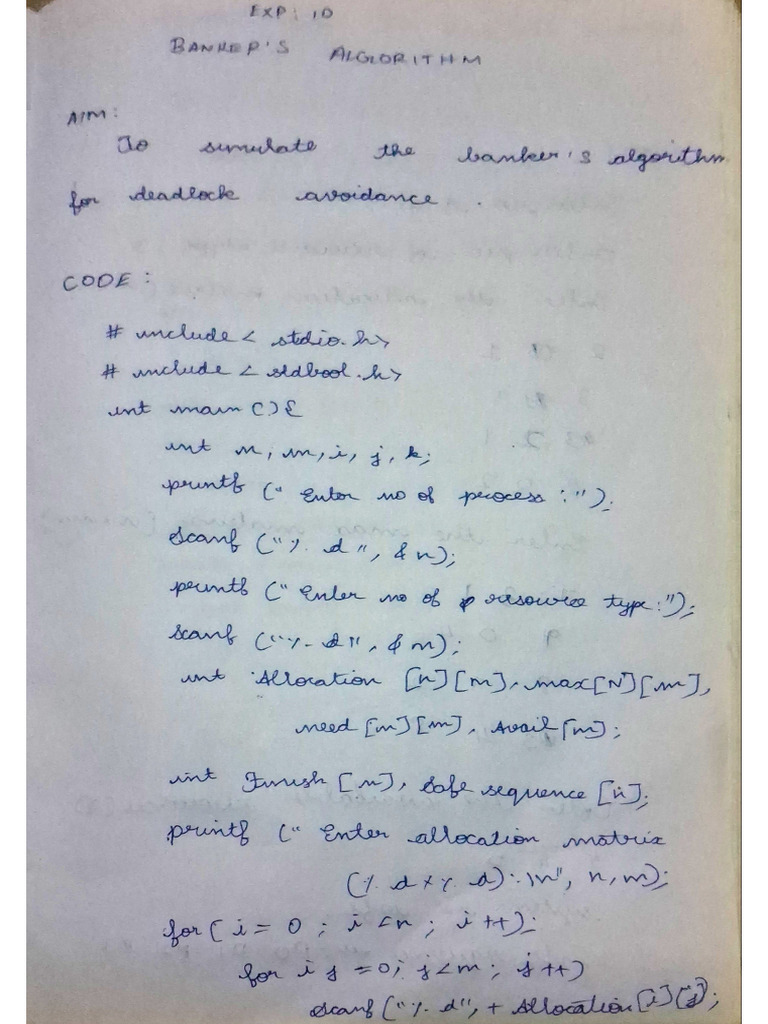 EXP: 10
BANKER'S ALGLORITHM
AIM:
To simulate the banker's algorithm
for deadlock avoidance.
CODE:
# include < stdio.h>
# include < stdbool.h>
int main (){
int n, m, i, j, k;
printf (" Enter no of process :");
scanf ("%. d", & n);
printf (" Enter no of resource type:");
scanf ("%. d", & m);
int Allocation [n][m], max[N][m],
need [m][m], Avail[m];
int Finish [n], Safe sequence [n];
printf (" Enter allocation matrix
(%. d x %. d):\n", n, m);
for( i = 0 ; i <n ; i ++);
for i j =0; j<m ; j++)
scanf ("%. d", + Allocation[i][j);